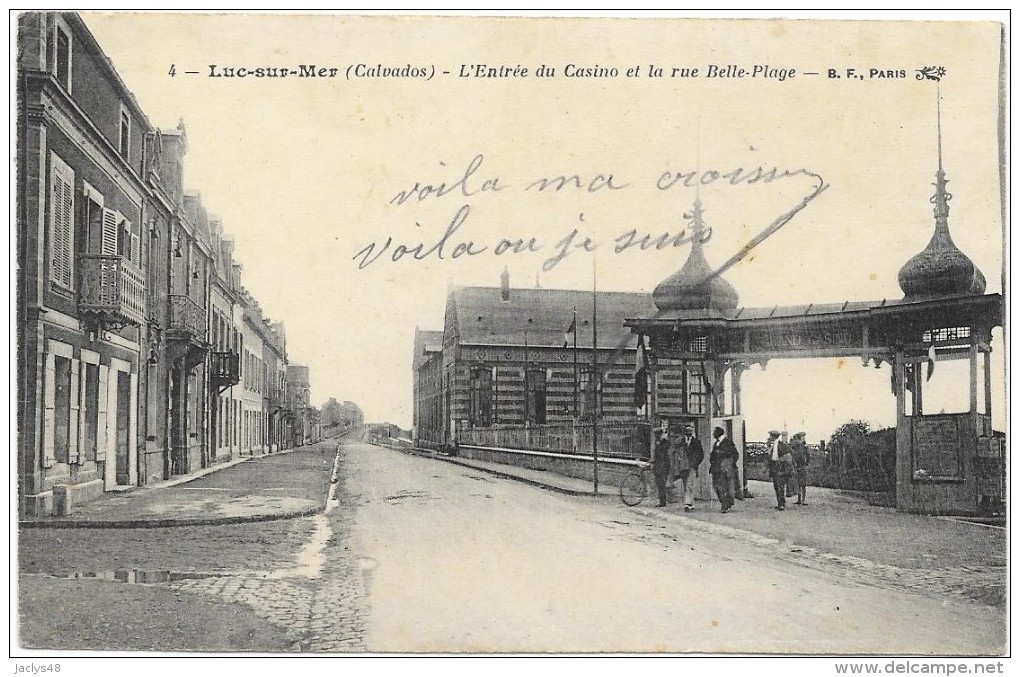 4 — Luc-sur-Mer (Calvados) - L'Entrée du Casino et la rue Belle-Plage — B. F., PARIS
voila ma croix
voila ou je suis
jaclys48
www.delcampe.net